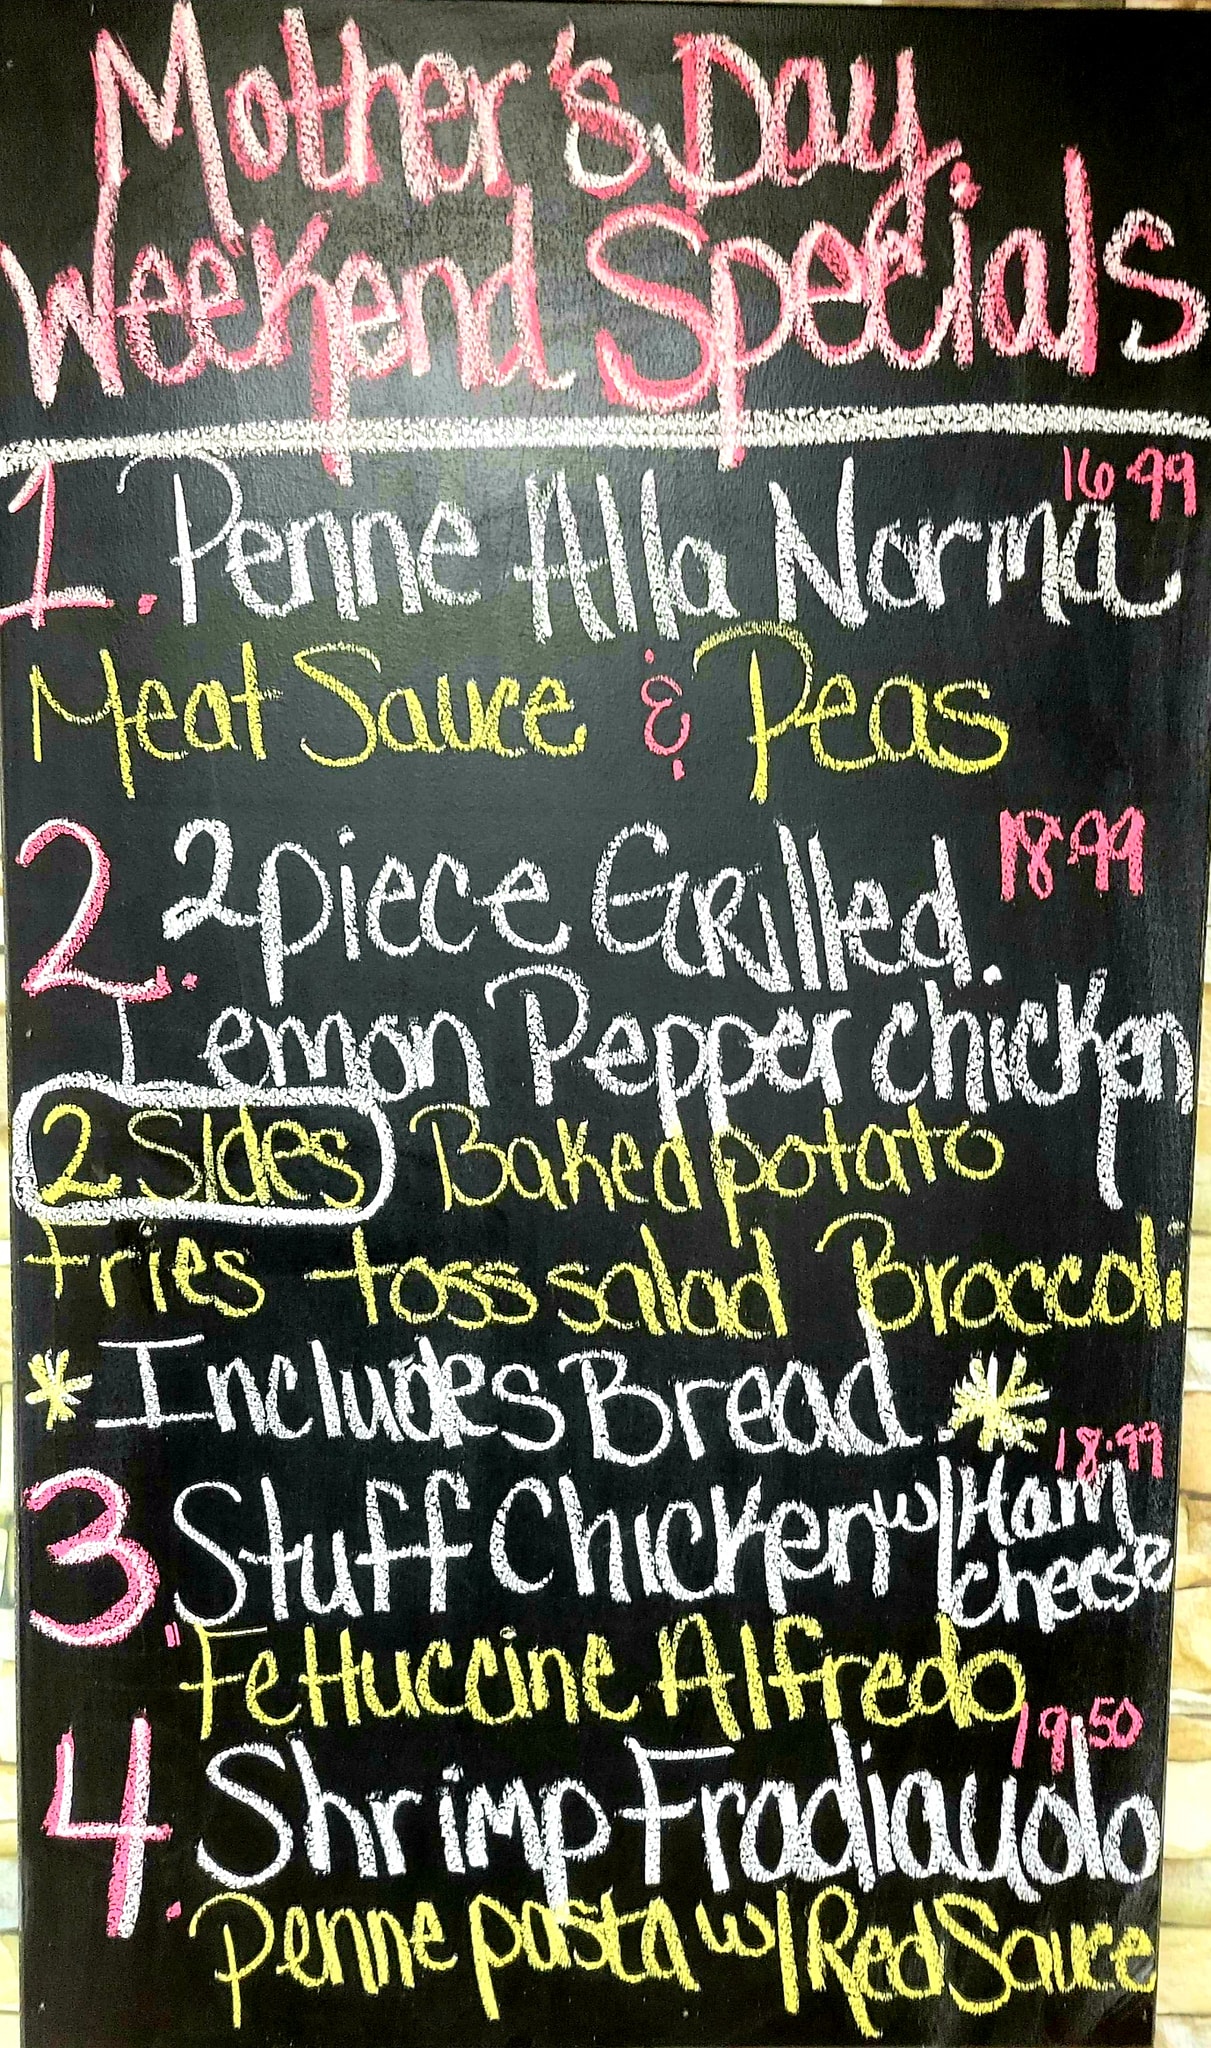 Mother's Day
Weekend Specials
16.99
1. Penne Alla Norma
Meat Sauce & Peas
18.99
2. 2piece Grilled.
Lemon Pepper chicken
2 Sides Baked potato
Fries toss salad Broccoli
* Includes Bread. *
18.99
3. Stuff Chicken w/ Ham
cheese
Fettuccine Alfredo
19.50
4. Shrimp Fradiauolo
Penne pasta w/ Red Sauce